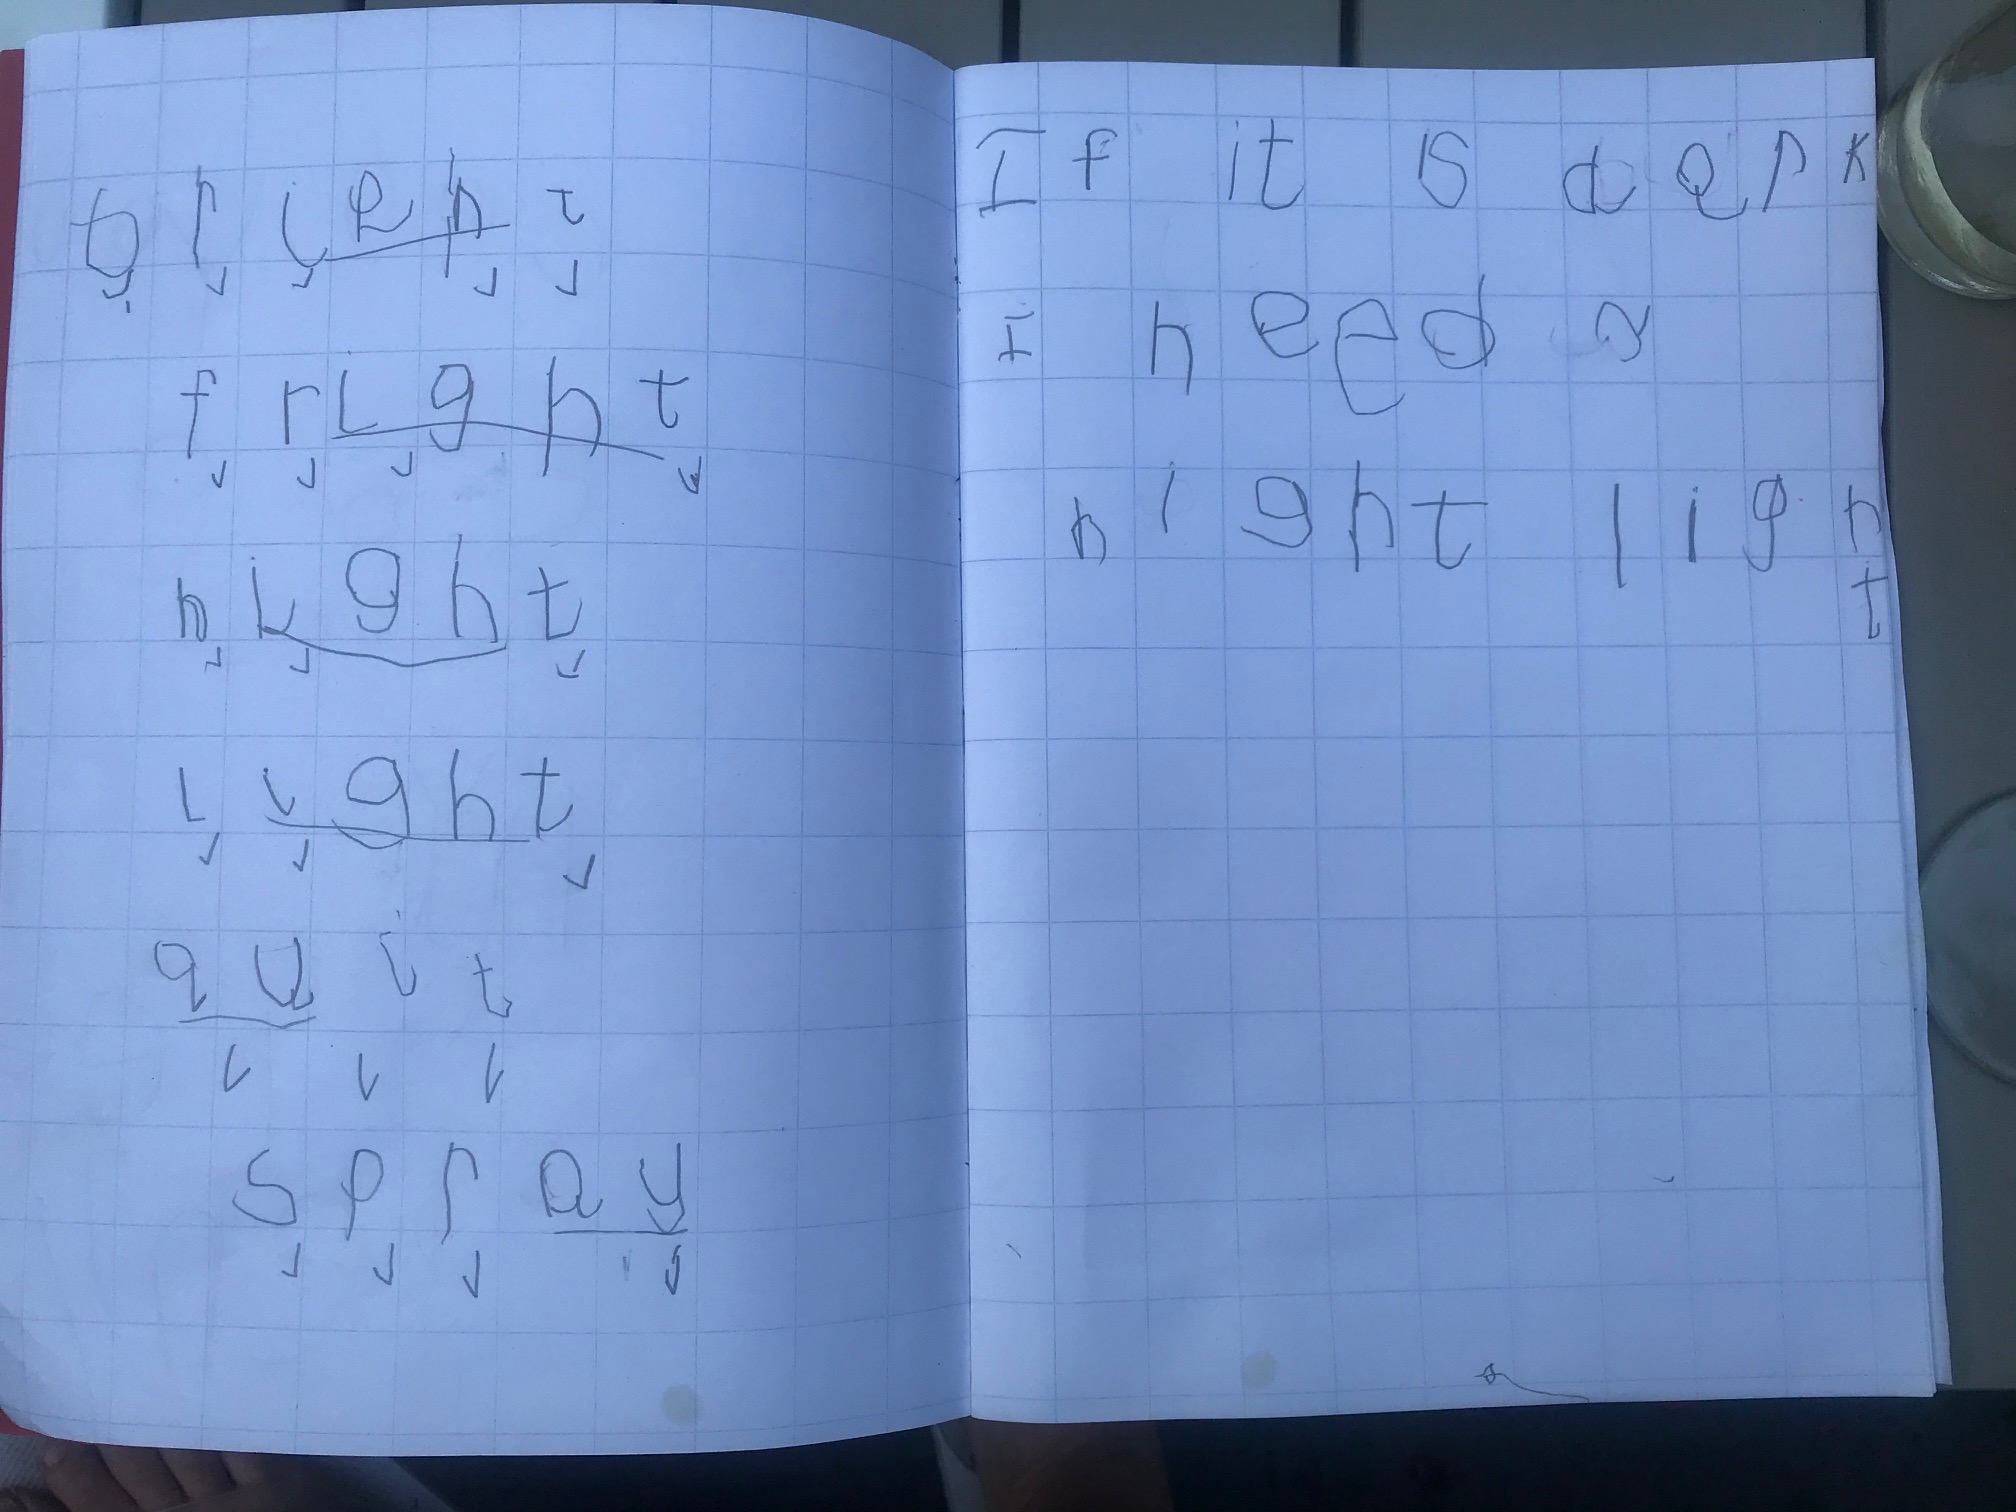 bright
fright
night
light
quit
spray
If it is dark
I need a
night ligh
t